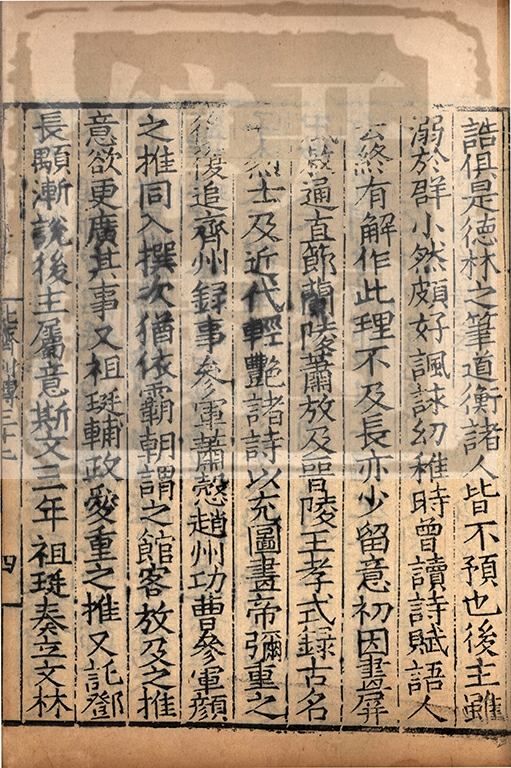 誥俱是德林之筆道衡諸人皆不預也後主雖
溺於群小然頗好諷詠幼稚時曾讀詩賦語人
云終有解作此理不及長亦少留意初因畫屏
風敕通直郎蘭陵蕭放及晉陵王孝式録古名
烈士及近代輕艶諸詩以充圖畫帝彌重之
後復追齊州録事參軍蕭慤趙州功曹參軍顔
之推同入撰次猶依霸朝謂之館客放及之推
意欲更廣其事又祖珽輔政愛重之推又託鄧
長顒漸說後主屬意斯文三年祖珽奏立文林
北齊列傳三十七
四